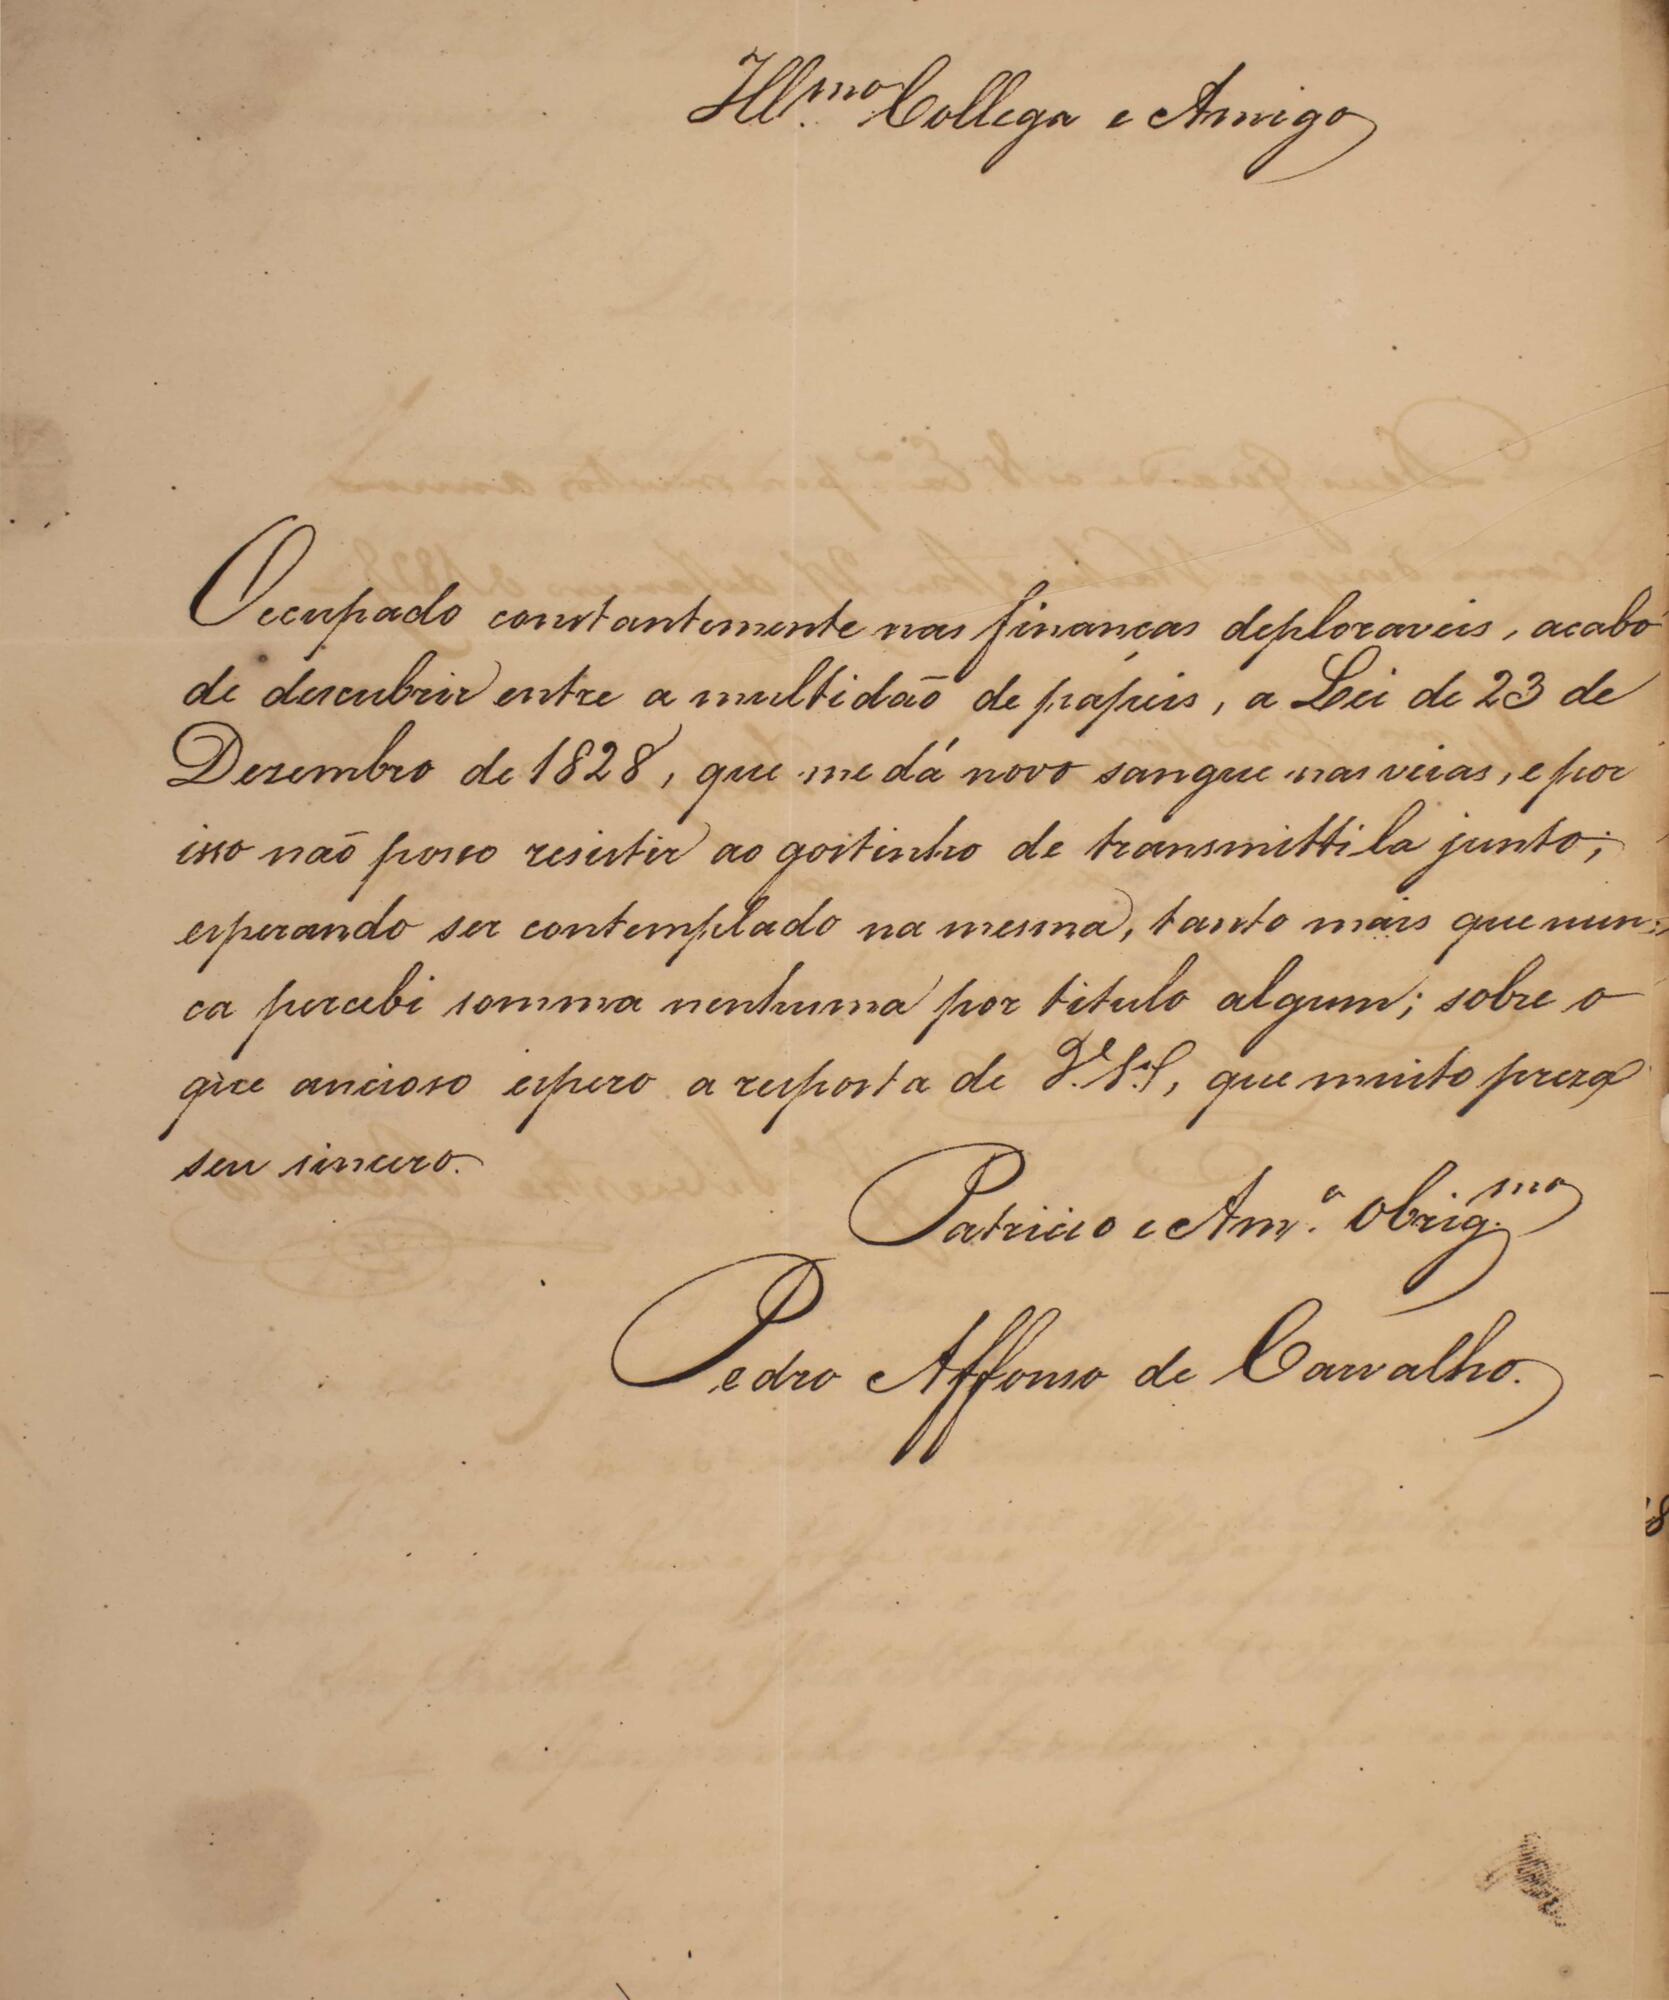 Ill.mo Collega e Amigo
Occupado constantemente nas finanças deploraveis, acabo
de descubrir entre a multidaõ de papeis, a Lei de 23 de
Dezembro de 1828, que me dá novo sangue nas veias, e por
isso naõ posso resistir ao gostinho de transmittila junto;
esperando ser contemplado na mesma, tanto mais que nun-
ca percebi somma nenhuma por titulo algum; sobre o
que ancioso espero a resposta de V. S.ª, que muito preza
seu sincero.
Patricio e Am.º Obrig.mo
Pedro Affonso de Carvalho.